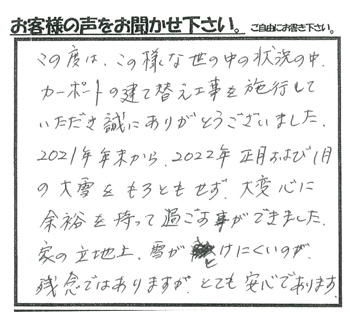 お客様の声をお聞かせ下さい。 ご自由にお書き下さい。
この度は、この様な世の中の状況の中、
カーポートの建て替え工事を施行して
いただき誠にありがとうございました。
2021年年末から、2022年正月および1月
の大雪をもろともせず、大変心に
余裕を持って過ごす事ができました。
家の立地上、雪がとけにくいのが、
残念ではありますが、とても安心であります。